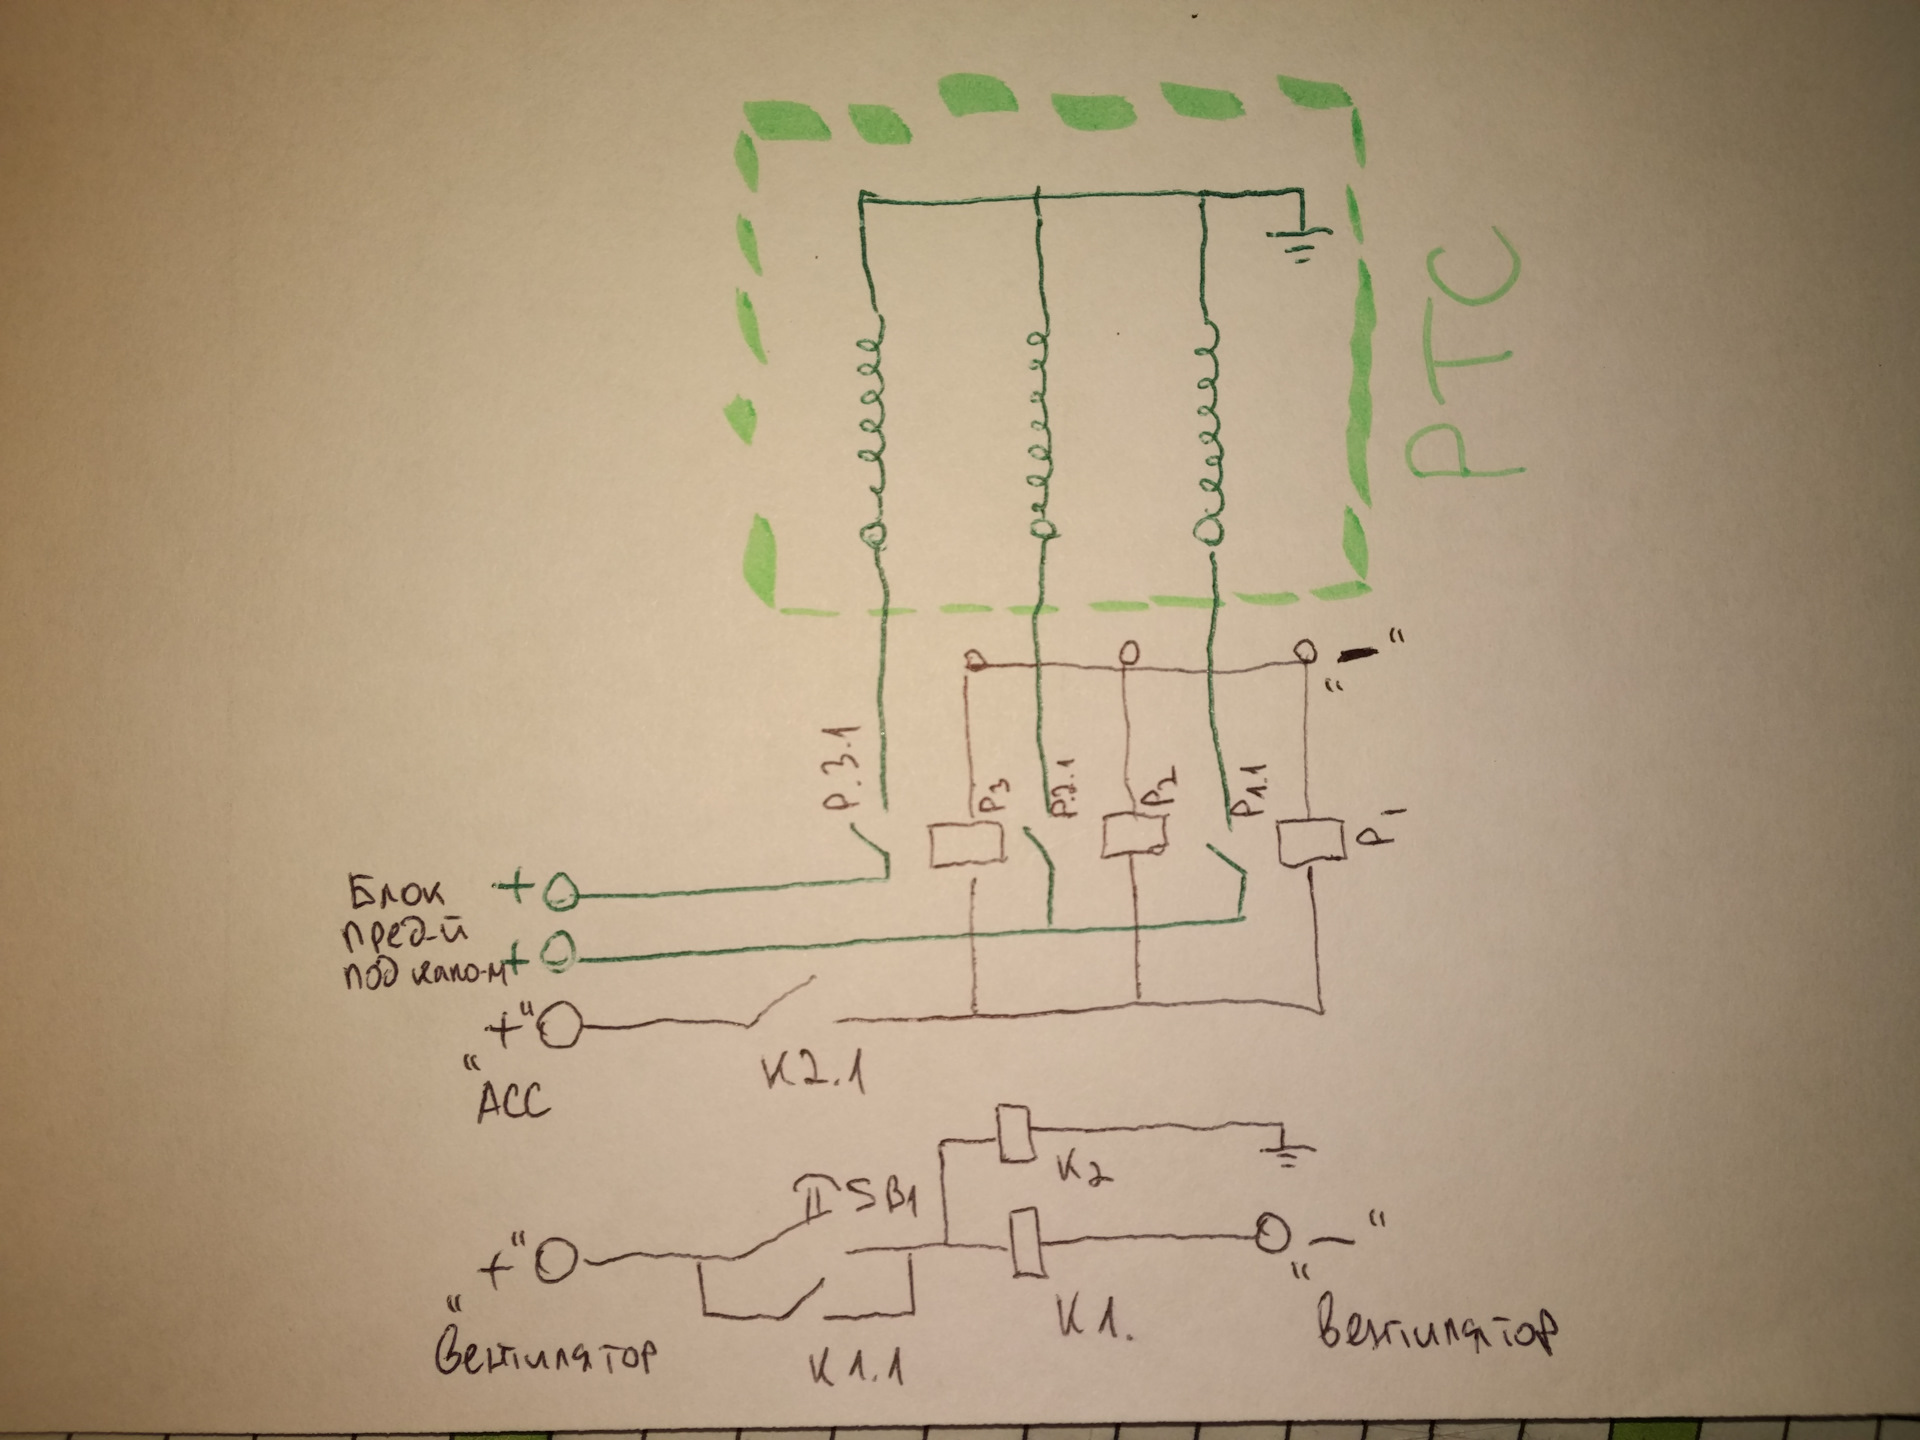 PTC
"-"
P.3.1
P3
P.2.1
P2
P1.1
P1
Блок
пред-й
под капо-м
+
+
"+"
АСС
К2.1
К2
SB1
"+"
Вентилятор
К1.1
К1.
"-"
Вентилятор